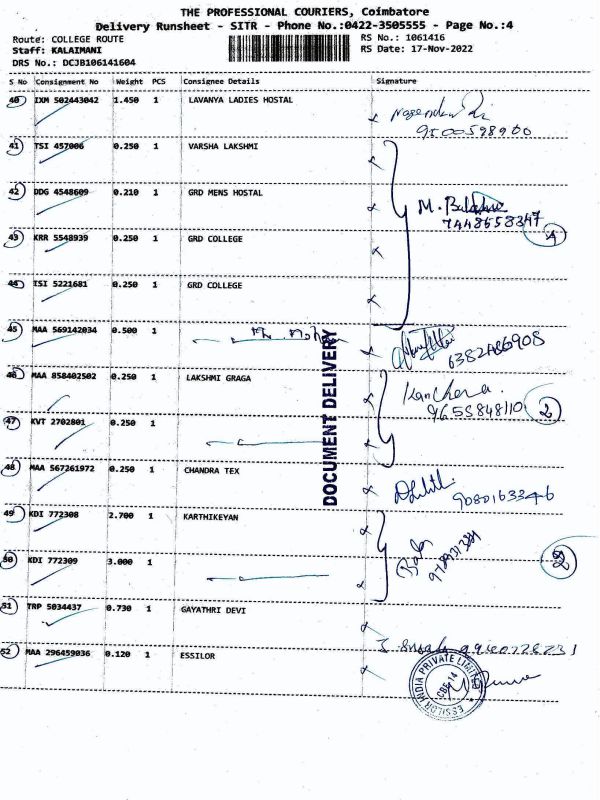 THE PROFESSIONAL COURIERS, Coimbatore
Delivery Runsheet - SITR - Phone No.:0422-3505555 - Page No.:4
Route: COLLEGE ROUTE RS No.: 1061416
Staff: KALAIMANI RS Date: 17-Nov-2022
DRS No.: DCJB106141604
S No Consignment No Weight PCS Consignee Details Signature
40 IXM 502443042 1.450 1 LAVANYA LADIES HOSTAL
9500598900
41 TSI 457006 0.250 1 VARSHA LAKSHMI
42 DDG 4548609 0.210 1 GRD MENS HOSTAL M.
7448658347 4
43 KRR 5548939 0.250 1 GRD COLLEGE
44 TSI 5221681 0.250 1 GRD COLLEGE
45 MAA 569142034 0.500 1
46 MAA 858402502 0.250 1 LAKSHMI GRAGA
9655848110 2
47 KVT 2702801 0.250 1
DOCUMENT DELIVERY
48 MAA 567261972 0.250 1 CHANDRA TEX
9080163346
49 KDI 772308 2.700 1 KARTHIKEYAN
50 KDI 772309 3.000 1 2
51 TRP 5034437 0.730 1 GAYATHRI DEVI
52 MAA 296459036 0.120 1 ESSILOR
ESSILOR INDIA PRIVATE LIMITED
CBE-14